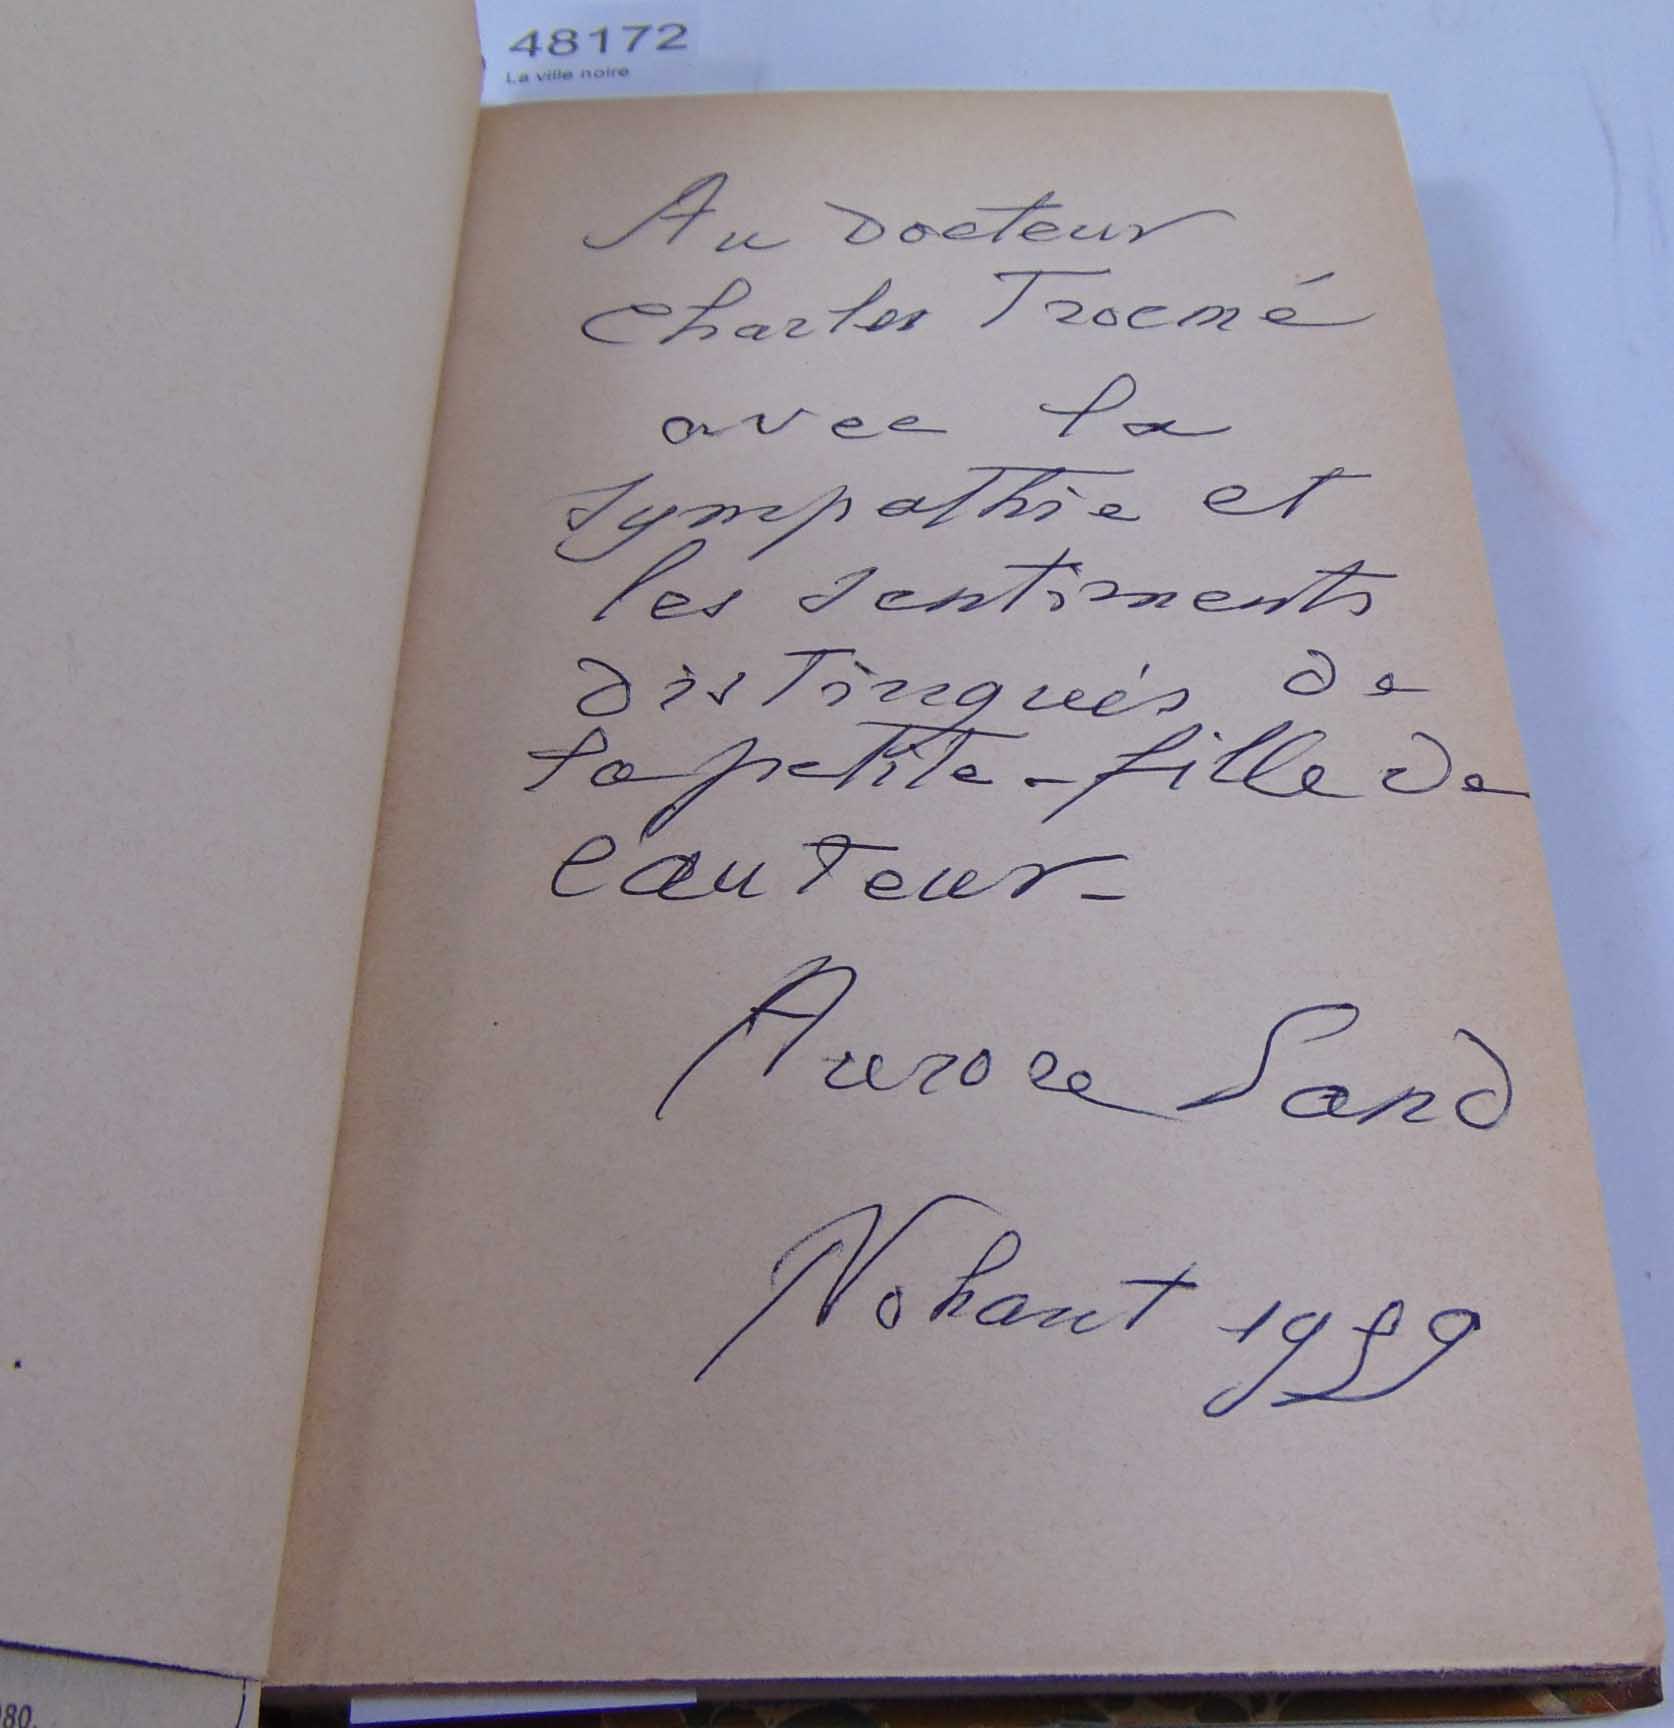 48172
La ville noire
Au Docteur
Charles Trocmé
avec la
sympathie et
les sentiments
distingués de
la petite-fille de
l'auteur-
Aurore Sand
Nohant 1959
980.